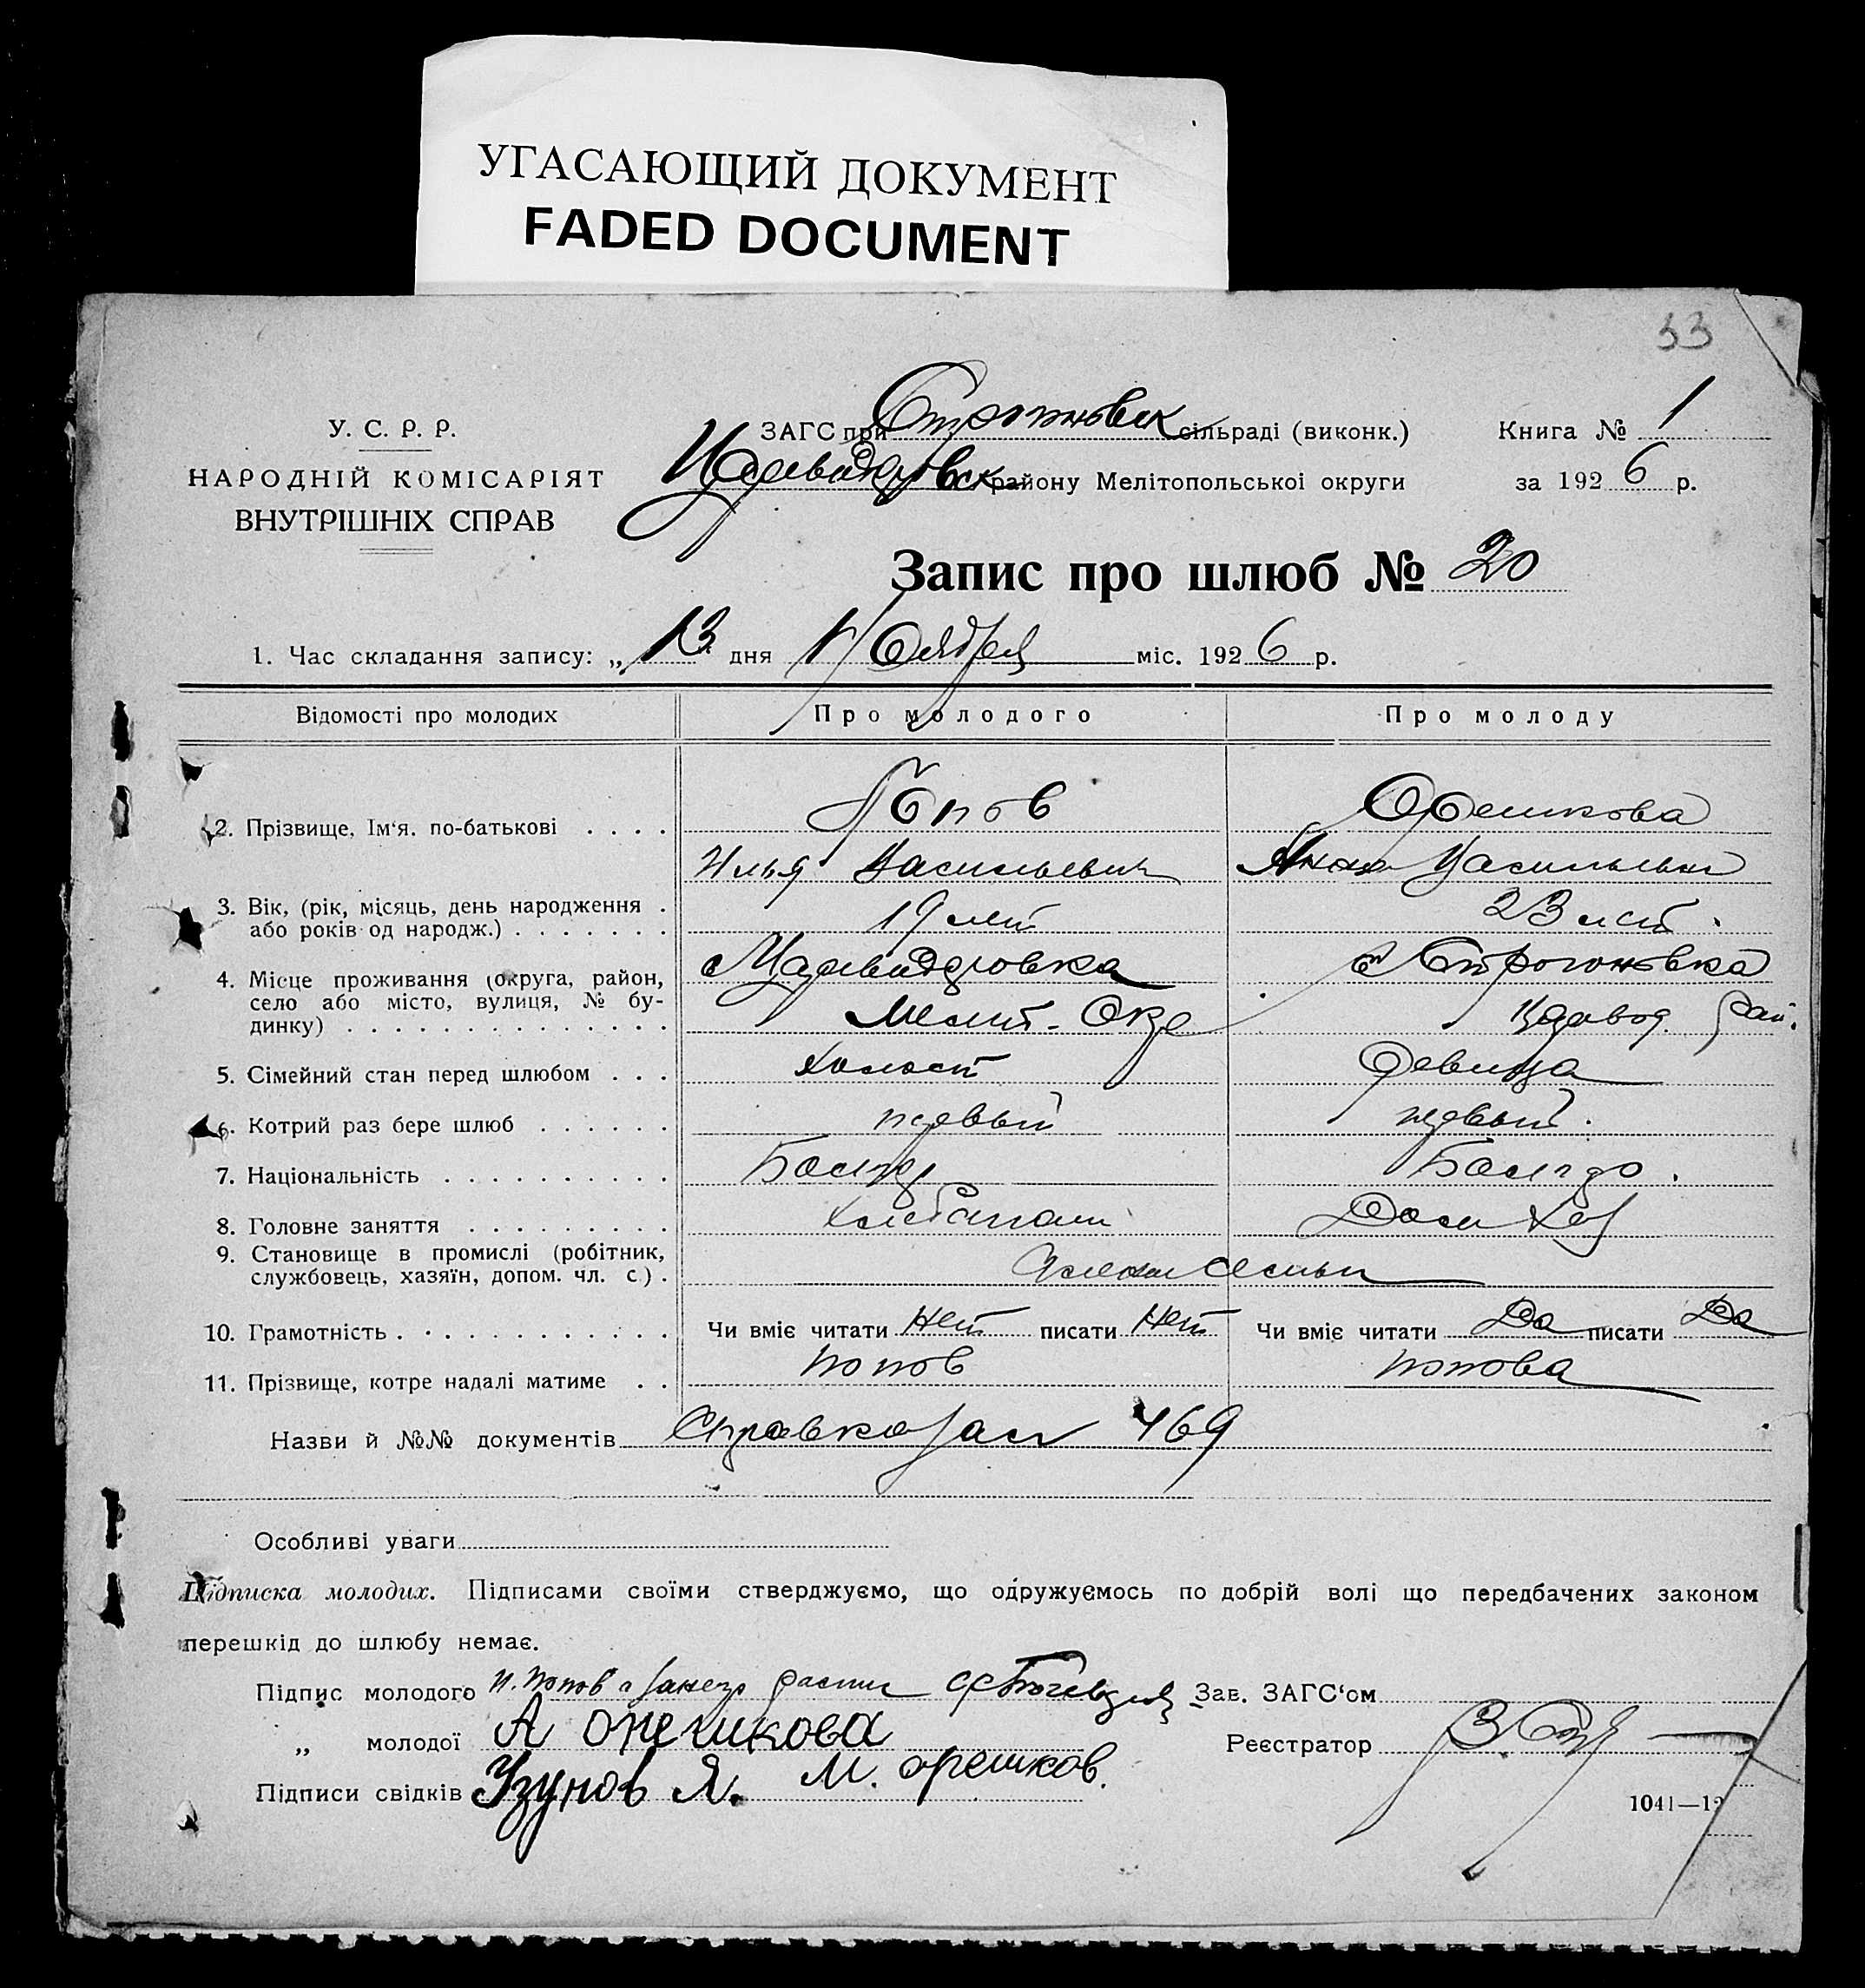 УГАСАЮЩИЙ ДОКУМЕНТ
FADED DOCUMENT
33
У. С. Р. Р.
НАРОДНІЙ КОМІСАРІЯТ
ВНУТРІШНІХ СПРАВ
ЗАГС при сільраді (виконк.) Книга № 1
району Мелітопольськоі округи за 1926 р.
Запис про шлюб № 20
1. Час складання запису: „13" дня Ноября міс. 1926 р.
Відомості про молодих Про молодого Про молоду
2. Прізвище, Ім'я, по-батькові . . . . Попов Орешкова
Илья Васильевич Анна Васильевн
3. Вік, (рік, місяць, день народження .
або років од народж.) . . . . . . . 19 лет 23 лет.
4. Місце проживання (округа, район,
село або місто, вулиця, № бу-
динку) . . . . . . . . . . . . . .
с Строгоновка
Мелит. Окр Царевод. Рай.
5. Сімейний стан перед шлюбом . . . Холост Девица
6. Котрий раз бере шлюб . . . . . . первый первый.
7. Національність . . . . . . . . . . Болгар Болгар.
8. Головне заняття . . . . . . . . . Хлебопаш Дом Хоз
9. Становище в промислі (робітник,
службовець, хазяїн, допом. чл. с.) . Члены семьи
10. Грамотність . . . . . . . . . . . . Чи вміє читати нет писати нет Чи вміє читати Да писати Да
11. Прізвище, котре надалі матиме . . Попов Попова
Назви й №№ документів Справка 469
Особливі уваги
Підписка молодих. Підписами своїми стверджуємо, що одружуємось по добрій волі що передбачених законом
перешкід до шлюбу немає.
Підпис молодого И. Попов а Зав. ЗАГС'ом
„ молодої А Орешкова Реєстратор
Підписи свідків Узунов Я. М. Орешков.
1041—19